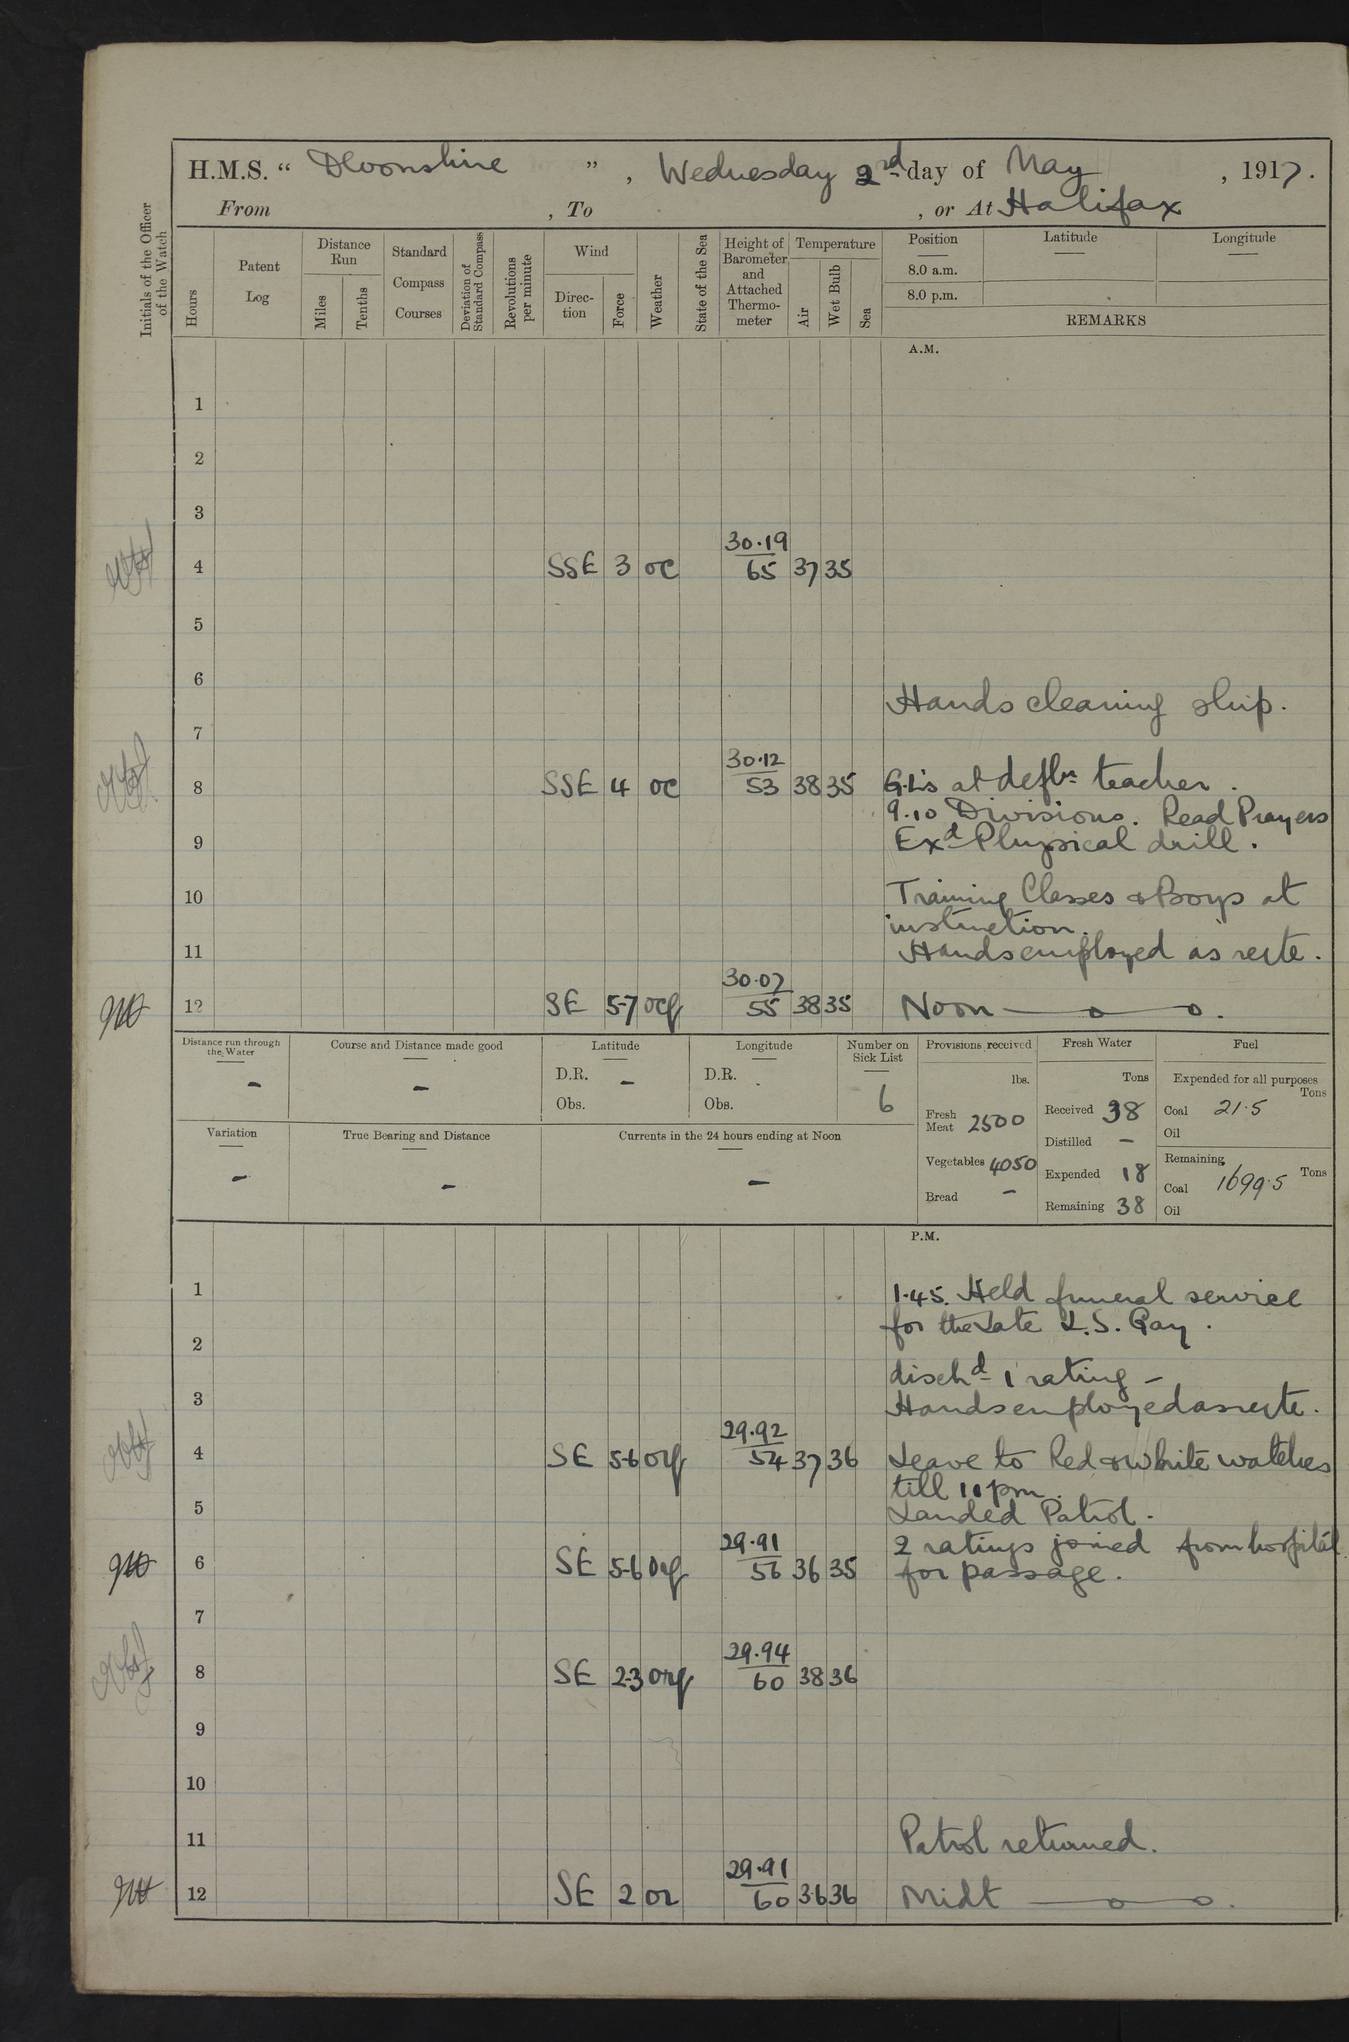 H.M.S. " Devonshire " , Wednesday 2nd day of May , 1917.
From , To , or At Halifax
Initials of the Officer of the Watch
Hours
Patent Log
Distance Run
Miles
Tenths
Standard Compass Courses
Deviation of Standard Compass
Revolutions per minute
Wind
Direc-tion
Force
Weather
State of the Sea
Height of Barometer and Attached Thermo-meter
Temperature
Air
Wet Bulb
Sea
Position Latitude Longitude
8.0 a.m.
8.0 p.m.
REMARKS
A.M.
1
2
3
30.19
4 SSE 3 oc 65 37 35
5
6
Hands cleaning ship.
7
30.12
8 SSE 4 oc 53 38 35 G.L's at defln teacher.
9.10 Divisions. Read Prayers
9 Exd Physical drill.
10 Training Classes & Boys at
instruction.
11 Hands employed as reqte.
30.07
12 SE 5-7 ocq 55 38 35 Noon
Distance run through the Water
-
Course and Distance made good
-
Latitude
D.R. -
Obs.
Longitude
D.R.
Obs.
Number on Sick List
6
Variation
-
True Bearing and Distance
-
Currents in the 24 hours ending at Noon
-
Provisions received
lbs.
Fresh Meat 2500
Vegetables 4050
Bread -
Fresh Water
Tons
Received 38
Distilled -
Expended 18
Remaining 38
Fuel
Expended for all purposes
Tons
Coal 21.5
Oil
Remaining
Tons
Coal 1699.5
Oil
P.M.
1 1.45. Held funeral service
for the Late L.S. Gay.
2
dischd 1 rating -
3 Hands employed as reqte.
29.92
4 SE 5-6 orq 54 37 36 Leave to Red & White watches
till 11 pm.
5 Landed Patrol.
29.91 2 ratings joined from hospital
6 SE 5-6 orq 56 36 35 for passage.
7
29.94
8 SE 2-3 orq 60 38 36
9
10
11 Patrol returned.
29.91
12 SE 2 or 60 36 36 Midt